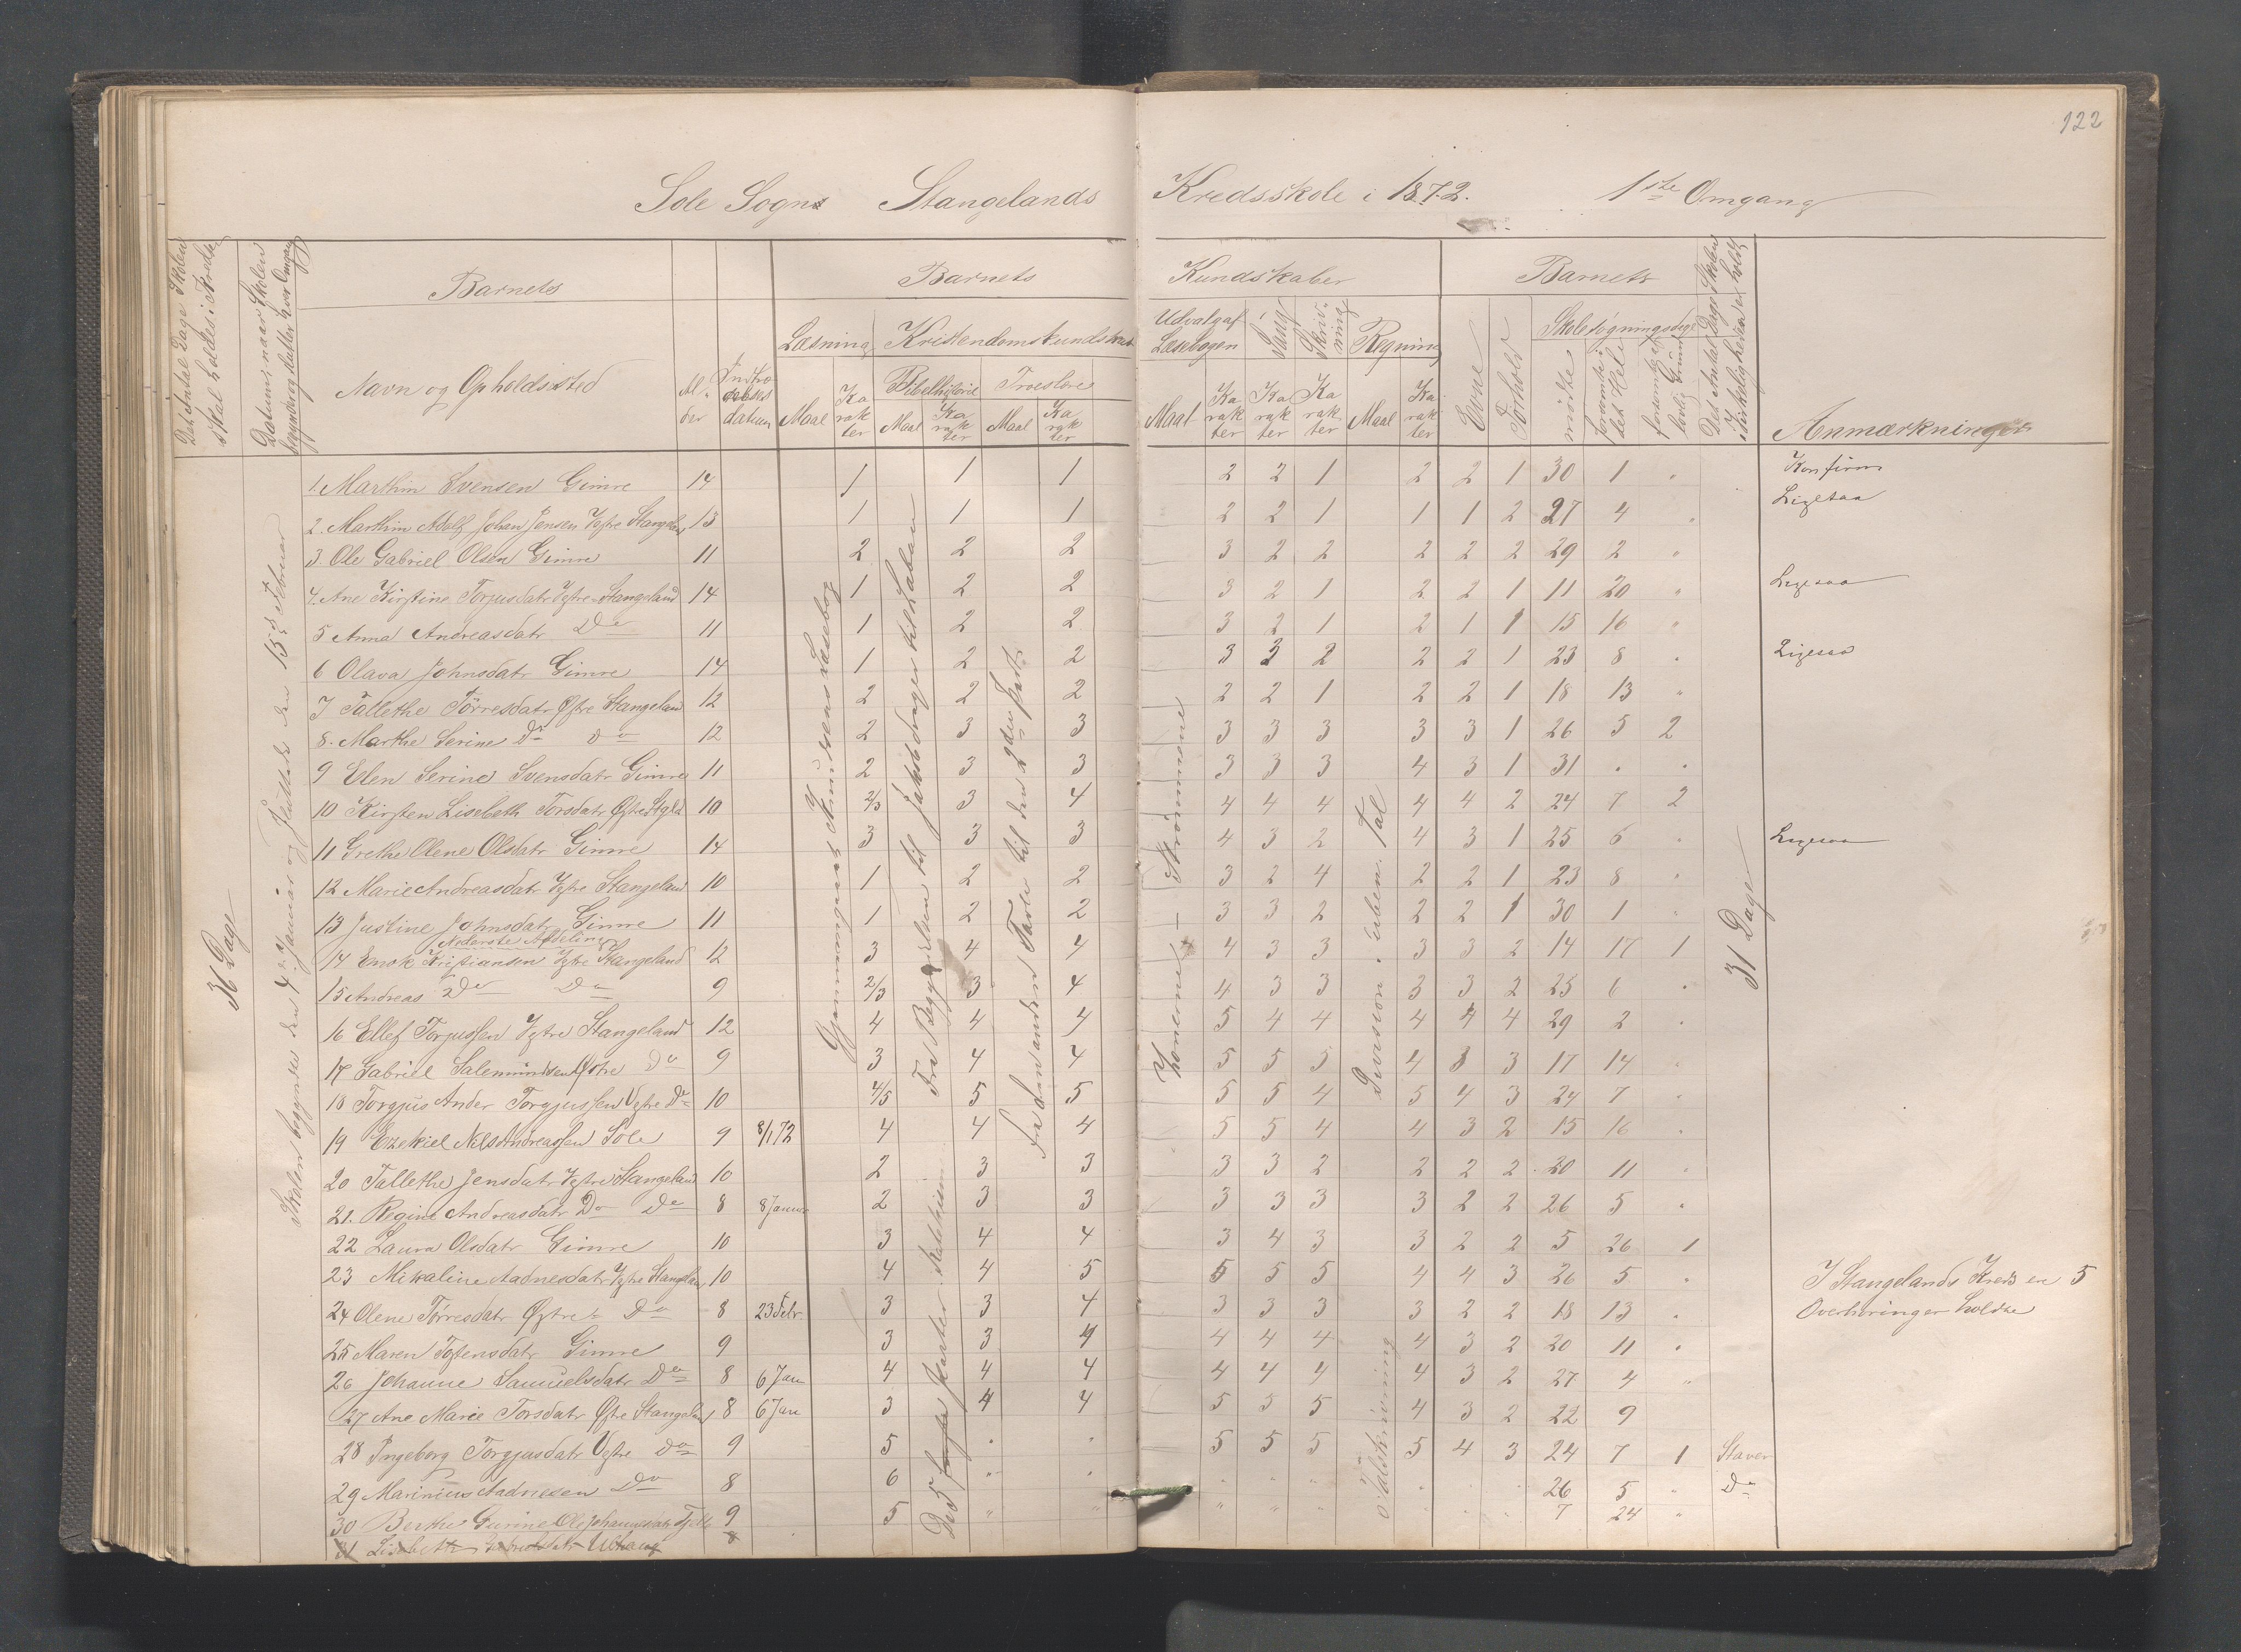 122
Sole Sogns Stangelands Kredsskole i 1872. 1ste Omgang
Det Antal Dage Skolen skal holdes i Kredsen
Datum, naar Skolen begynder og slutter hver Omgang
Barnets
Navn og Opholdssted
Alder
Indtrædelsesdatum
Barnets Kundskaber
Læsning
Kristendomskundskab
Bibelhistorie
Troeslære
Udvalg af Læsebogen
Sang
Skrivning
Regning
Maal
Karakter
Barnets
Evne
Forhold
Skolesøgningsdage
mødte
forsømte i det Hele
forsømte af lovlig Grund
Det Antal Dage Skolen i Virkeligheden er holdt
Anmærkninger
36 Dage
Skolen begyndte den 4de Januar og sluttede den 15de Februar
31 Dage
1 Marthin Svensen Gimre 14 1 1 1 2 2 1 2 2 1 30 1 " Konfirm
2. Marthin Adolf Johan Jensen Ystre Stangeland 13 1 1 1 2 2 1 1 1 2 27 4 " Ligesaa
3. Ole Gabriel Olsen Gimre 11 2 2 2 3 2 2 2 2 2 29 2 "
4. Ane Kirstine Torjusdatr Ystre Stangeland 14 1 2 2 3 2 1 2 2 1 11 20 " Ligesaa
5 Anna Andreasdatr Do 11 1 2 2 3 2 1 2 1 1 15 16 "
6 Olava Johnsdatr Gimre 14 1 2 2 3 3 2 2 2 1 23 8 " Ligesaa
7 Tallethe Tørresdatr Østre Stangeland 12 2 2 2 2 2 1 2 2 1 18 13 "
8. Marthe Serine Do do 12 2 3 3 3 3 3 3 3 1 26 5 2
9 Elen Serine Svensdatr Gimre 11 2 3 3 3 3 3 4 3 1 31 " "
10 Kirsten Lisebeth Torsdatr Østre Stgld 10 2/3 3 4 4 4 4 4 4 2 24 7 2
11 Grethe Olene Olsdatr Gimre 14 3 3 3 4 3 2 4 3 1 25 6 " Ligesaa
12 Marie Andreasdatr Ystre Stangeland 10 1 2 2 3 2 4 2 2 1 23 8 "
13 Justine Johnsdatr Gimre 11 1 2 2 3 3 2 2 2 1 30 1 "
Nederste Afdeling
14 Enok Kristiansen Ystre Stangeland 12 3 4 4 4 3 3 3 3 2 14 17 1
15 Andreas Do Do 9 2/3 3 4 4 3 3 3 3 2 25 6 "
16 Ellef Torjussen Ystre Stangeland 12 4 4 4 5 4 4 4 4 4 29 2 "
17 Gabriel Salemundsen Østre Do 9 3 4 4 5 5 5 4 3 3 17 14 "
18 Torgjus Ander Torgjussen Vestre Do 10 4/5 5 5 5 5 4 5 4 3 24 7 "
19 Ezekiel Nils Andreassen Sole 9 8/1 72 4 4 4 5 5 4 4 3 2 15 16 "
20 Tallethe Jensdatr Ystre Stangeland 10 2 3 3 3 3 2 2 2 2 20 11 "
21. Regine Andreasdatr Do Do 8 8 Januar 2 3 3 3 3 3 3 2 2 26 5 "
22 Laura Olsdatr Gimre 10 3 4 4 3 4 3 3 2 2 5 26 1
23 Mikaline Aadnesdatr Ystre Stangeland 10 4 4 5 5 5 5 4 4 3 26 5 "
24 Olene Tørresdatr Østre Do 8 23 Febr. 3 3 4 3 3 3 3 2 2 18 13 "
25 Maren Tostensdatr Gimre 9 3 3 4 4 4 4 4 3 2 20 11 "
26 Johanne Samuelsdatr Do 8 6 Jan 4 4 4 4 4 4 4 3 2 27 4 "
27 Ane Marie Torsdatr Østre Stangeland 8 6 Jan 3 4 4 5 5 5 4 3 2 22 9
28 Ingeborg Torgjusdatr Vestre Do 9 5 " " 5 5 5 5 4 3 24 7 1 Staver
29 Marinius Aadnesen Do 8 6 " " " " " " 26 5 " Do
30 Berthe Gurine Ole Johannesdatr 9 5 " " " " " " 7 24 "
31 Lisebeth 8
Gjennemgaaet Knudsens Læsebog
Fra Begyndelsen til Jakob drager til Laban
De 5 Parter
Fra den anden Tavle til den 2den Part
Konerne – Strømmene
Division i uben. Tal
Talskrivning
I Stangelands Kreds ere 5
Overhøringer holdte